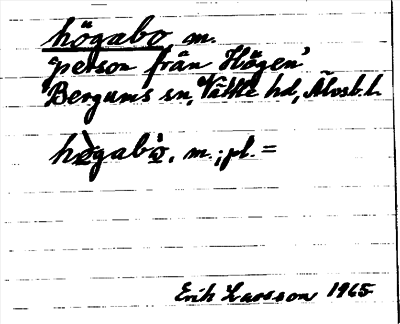 högabo m.
'person från Högen'
Bergums sn, Vättle hd, Älvsb. l.
hògabò, m.; pl. =
Erik Larsson 1965